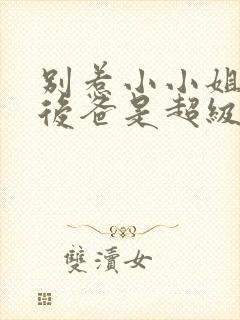 別惹小小姐
後爸是超級
雙瀆女